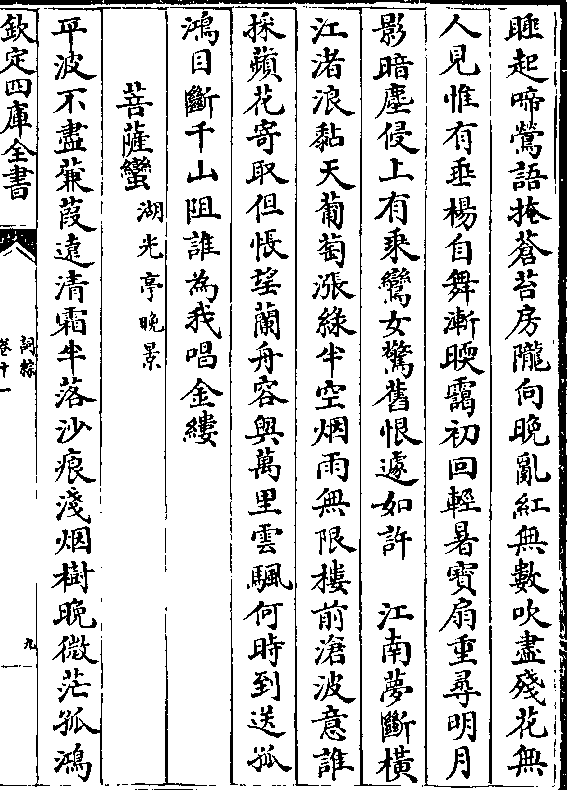 睡起啼鶯語掩蒼苔房隴向晩亂紅無數吹盡殘花無
人見惟有垂楊自舞漸暖靄初回輕暑寳扇重尋明月
影暗塵侵上有乘鸞女驚舊恨遽如許　江南夢斷橫
江渚浪黏天葡萄漲綠半空烟雨無限樓前滄波意誰
採蘋花寄取但悵望蘭舟容與萬里雲颿何時到送孤
鴻目斷千山阻誰為我唱金縷
菩薩蠻　湖光亭晚景
平波不盡蒹葭遠清霜半落沙痕淺烟樹晚微茫孤鴻
欽定四庫全書
詞綜
卷十一
九